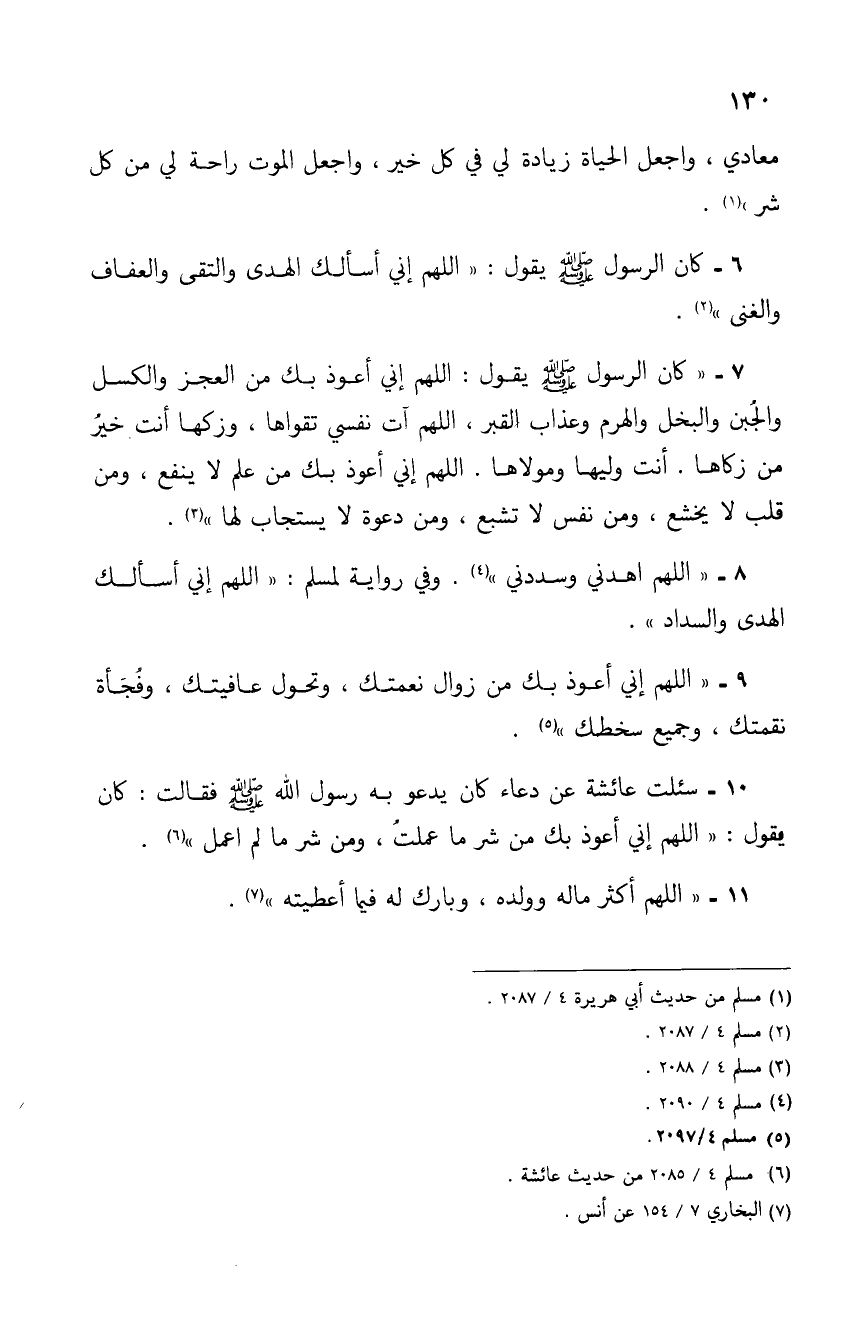 ١٣٠
معادي ، واجعل الحياة زيادة لي في كل خير ، واجعل الموت راحة لي من كل
شر »(١) .
٦ ـ كان الرسول ﷺ يقول : « اللهم إني أسألك الهدى والتقى والعفاف
والغنى »(٢) .
٧ ـ « كان الرسول ﷺ يقول : اللهم إني أعوذ بك من العجز والكسل
والجُبن والبخل والهرم وعذاب القبر ، اللهم آت نفسي تقواها ، وزكها أنت خيرُ
من زكاها . أنت وليها ومولاها . اللهم إني أعوذ بك من علم لا ينفع ، ومن
قلب لا يخشع ، ومن نفس لا تشبع ، ومن دعوة لا يستجاب لها »(٣) .
٨ ـ « اللهم اهدني وسددني »(٤) . وفي رواية لمسلم : « اللهم إني أسألك
الهدى والسداد » .
٩ ـ « اللهم إني أعوذ بك من زوال نعمتك ، وتحول عافيتك ، وفُجَأة
نقمتك ، وجميع سخطك »(٥) .
١٠ ـ سئلت عائشة عن دعاء كان يدعو به رسول الله ﷺ فقالت : كان
يقول : « اللهم إني أعوذ بك من شر ما عملتُ ، ومن شر ما لم اعمل »(٦) .
١١ ـ « اللهم أكثر ماله وولده ، وبارك له فيما أعطيته »(٧) .
(١) مسلم من حديث أبي هريرة ٤ / ٢٠٨٧ .
(٢) مسلم ٤ / ٢٠٨٧ .
(٣) مسلم ٤ / ٢٠٨٨ .
(٤) مسلم ٤ / ٢٠٩٠ .
(٥) مسلم ٢٠٩٧/٤ .
(٦) مسلم ٤ / ٢٠٨٥ من حديث عائشة .
(٧) البخاري ٧ / ١٥٤ عن أنس .